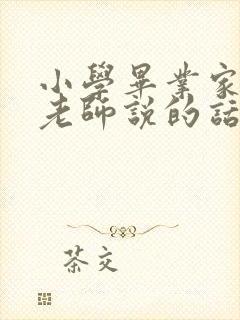 小學畢業家
老師說的話
茶交